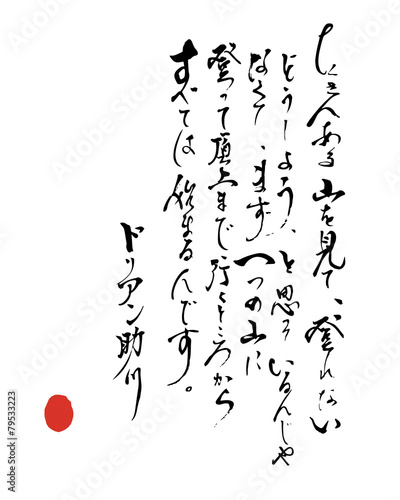 たくさんある山を見て、登れない
どうしよう、と思っているんじゃ
なくて、まず一つの山に
登って頂上まで行くところから
すべては始まるんです。
ドリアン助川
Adobe Stock | #79533223